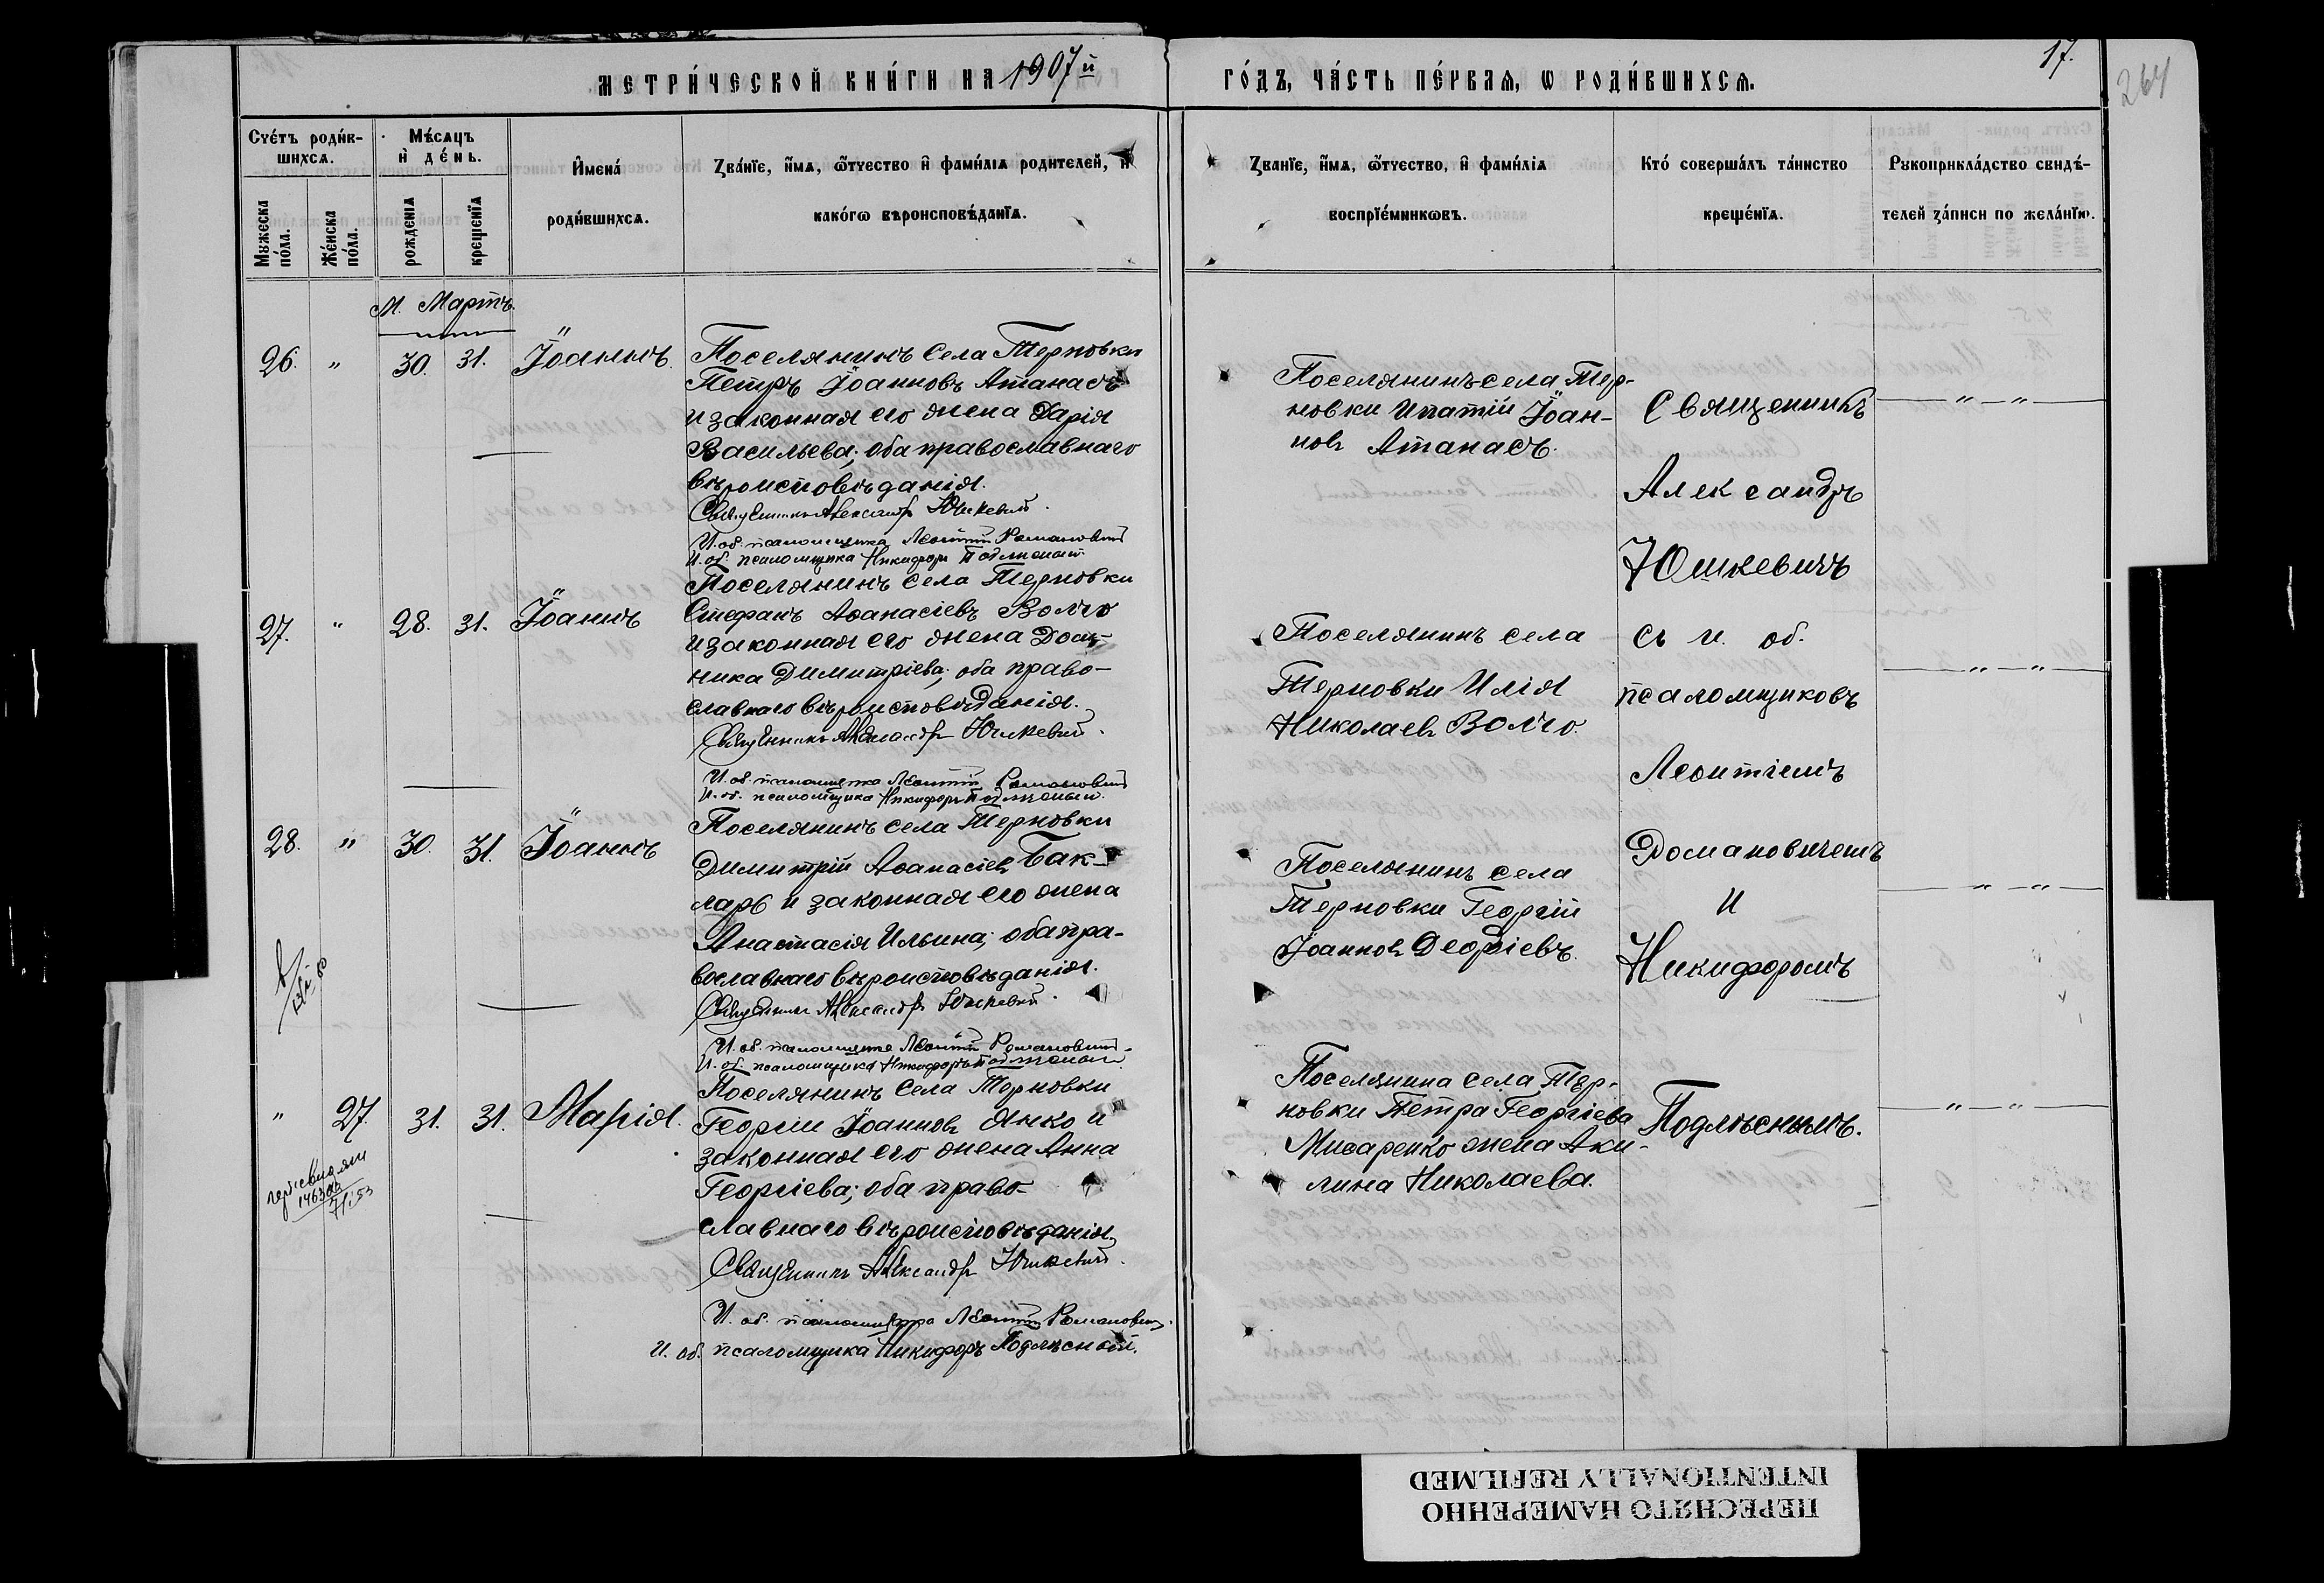 МЕТРИ́ЧЕСКОЙ КНИ́ГИ НА 1907й
ГО́ДЪ, ЧА́СТЬ ПЕ́РВАЯ, Ѡ РОДИ́ВШИХСЯ.
17.
264
Сче́тъ роди́в-
шихсѧ.
Мꙋжеска по́ла.
Же́нска по́ла.
Мѣ́сѧцъ и҆ де́нь.
рожденїѧ
крещенїѧ
И҆мена́
роди́вшихсѧ.
Зва́нїе, и҆́мѧ, ѻ҆́тчество и҆ фами́лїѧ родителей, и҆
како́гѡ вѣроисповѣ́данїѧ.
Зва́нїе, и҆́мѧ, ѻ҆́тчество, и҆ фами́лїѧ
воспрїе́мникѡвъ.
Кто́ соверша́лъ та́инство
креще́нїѧ.
Рꙋкоприкла́дство свидѣ́-
телей за́писи по жела́нїю.
М. Мартъ.
26. " 30. 31. Іоаннъ.
Поселянинъ села Терновки
Петръ Іоанновъ Атанасъ
и законная его жена Дарія
Васильева; оба православнаго
вѣроисповѣданія.
Священникъ Александръ Юшкевич.
И. об. псаломщика Леонтій Романович
И. об. псаломщика Никифоръ Подлѣсный
Поселянинъ села Тер-
новки Ипатій Іоан-
новъ Атанасъ.
27. " 28. 31. Іоаннъ
Поселянинъ села Терновки
Стефанъ Аѳанасіевъ Волчо
и законная его жена Дом-
ника Димитріева; оба право-
славнаго вѣроисповѣданія.
Священникъ Александръ Юшкевич.
И. об. псаломщика Леонтій Романович
И. об. псаломщика Никифоръ Подлѣсный.
Поселянинъ села
Терновки Илія
Николаевъ Волчо.
28. " 30. 31. Іоаннъ
Поселянинъ села Терновки
Димитрій Аѳанасіевъ Бак-
ларъ и законная его жена
Анастасія Ильина; оба пра-
вославнаго вѣроисповѣданія.
Священникъ Александръ Юшкевич.
И. об. псаломщика Леонтій Романович
И. об. псаломщика Никифоръ Подлѣсный
Поселянинъ села
Терновки Георгій
Іоанновъ Деордіевъ.
" 27. 31. 31. Марія.
Поселянинъ села Терновки
Георгій Іоанновъ Янко и
законная его жена Анна
Георгіева; оба право-
славнаго вѣроисповѣданія.
Священникъ Александръ Юшкевич.
И. об. псаломщика Леонтій Романович.
И. об. псаломщика Никифоръ Подлѣсной.
Поселянина села Тер-
новки Петра Георгіева
Мисаренко жена Аки-
лина Николаева.
Священникъ
Александръ
Юшкевичъ
съ и. об.
псаломщиковъ
Леонтіемъ
Романовичемъ
и
Никифоромъ
Подлѣснымъ.
ПЕРЕСНЯТО НАМЕРЕННО
INTENTIONALLY REFILMED